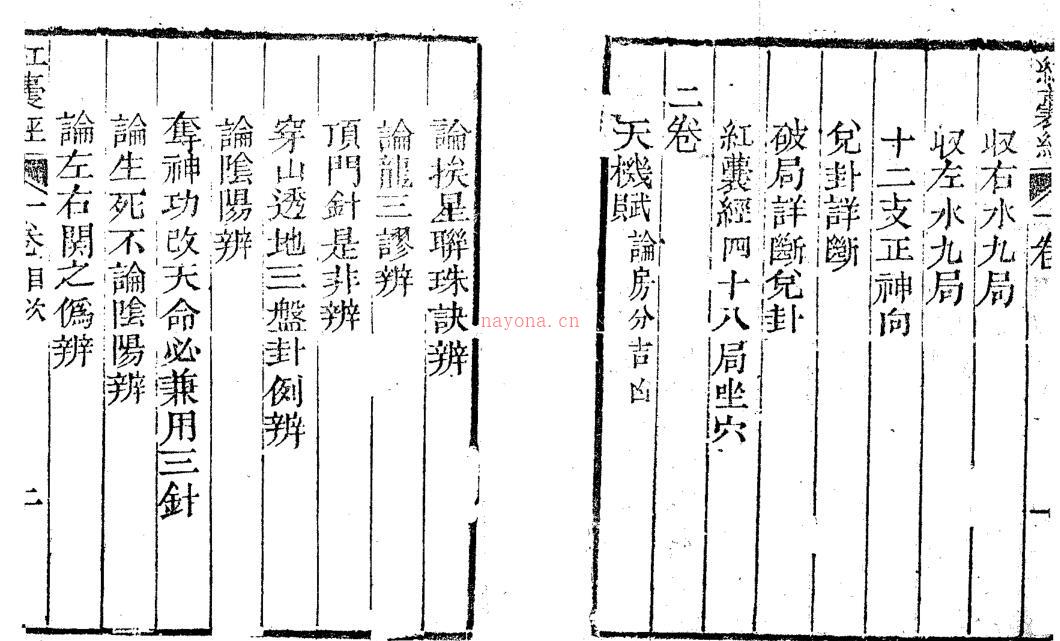 收右水九局
収左水九局
十二支正神向
兌卦詳斷
破局詳斷兌卦
紅囊經四十八局坐穴
二卷
天機賦 論房分吉凶
論挨星聯珠訣辨
論龍三謬辨
頂門針是非辨
穿山透地三盤卦例辨
論陰陽辨
奪神功改天命必兼用三針
論生死不論陰陽辨
論左右関之僞辨
紅囊經 一卷目次 二
nayona.cn